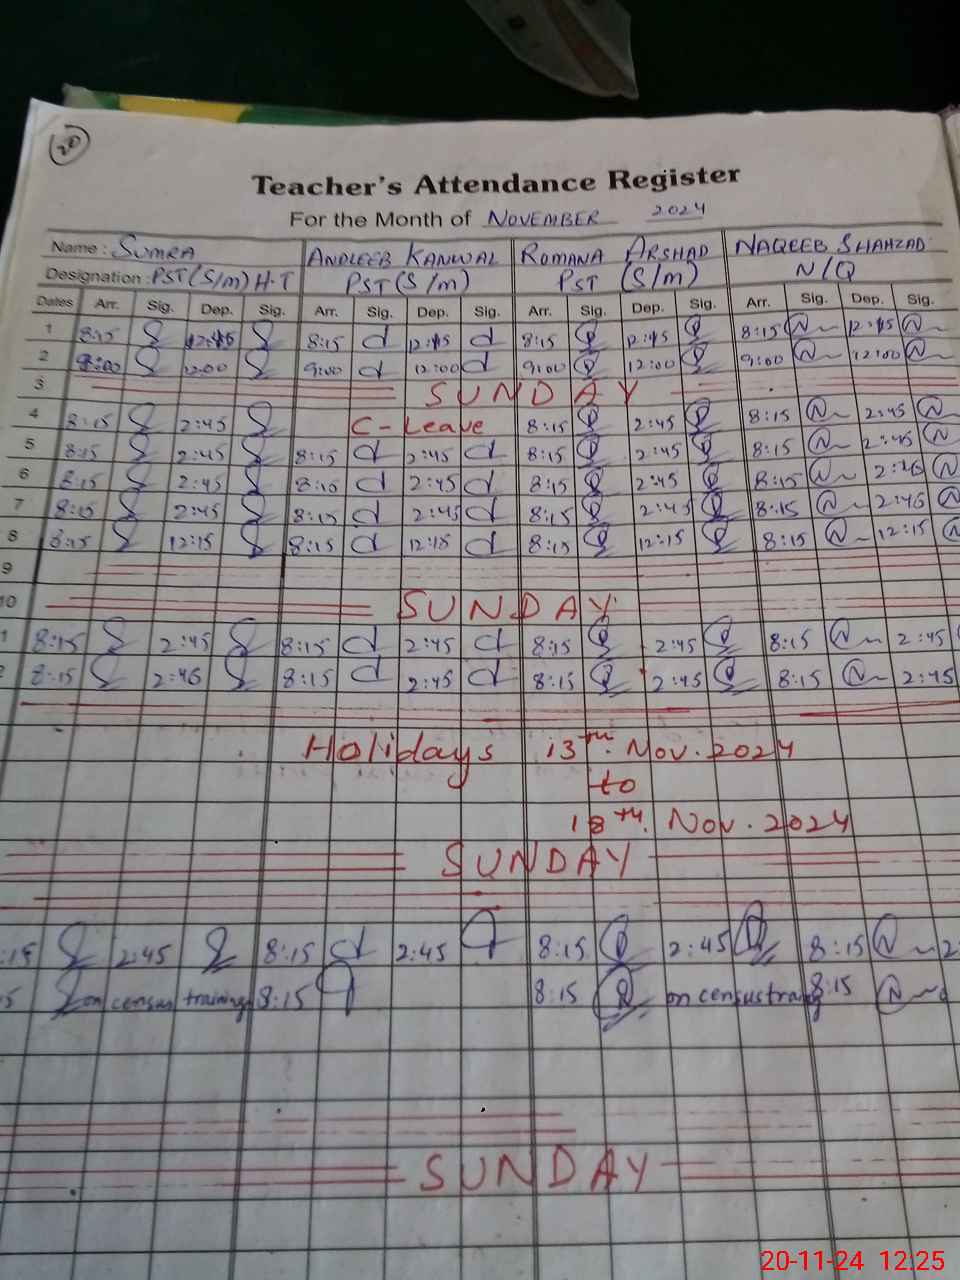 20
Teacher's Attendance Register
For the Month of NOVEMBER 2024
Name: SUMRA ANDLEEB KANWAL ROMANA ARSHAD NAQEEB SHAHZAD
Designation: PST (S/m) H-T PST (S/m) PST (S/m) N/Q
Dates Arr. Sig. Dep. Sig. Arr. Sig. Dep. Sig. Arr. Sig. Dep. Sig. Arr. Sig. Dep. Sig.
1 8:15 8:15 8:15 8:15
2 12:00 9:00 12:00 9:00 12:00 9:00 12:00
3 SUNDAY
4 8:15 2:45 C-Leave 8:15 2:45 8:15 2:45
5 8:15 2:45 8:15 2:45 8:15 2:45 8:15 2:45
6 8:15 2:45 8:15 2:45 8:15 2:45 8:15 2:45
7 8:15 2:45 8:15 2:45 8:15 2:45 8:15 2:45
8 8:15 12:15 8:15 12:15 8:15 12:15 8:15 12:15
9
10 SUNDAY
1 8:15 2:45 8:15 2:45 8:15 2:45 8:15 2:45
2 8:15 2:45 8:15 2:45 8:15 2:45 8:15 2:45
Holidays 13th. Nov. 2024
to
18th. Nov. 2024
SUNDAY
:15 2:45 8:15 2:45 8:15 2:45 8:15 2
5 on census training 8:15 8:15 on census 8:15
SUNDAY
20-11-24 12:25